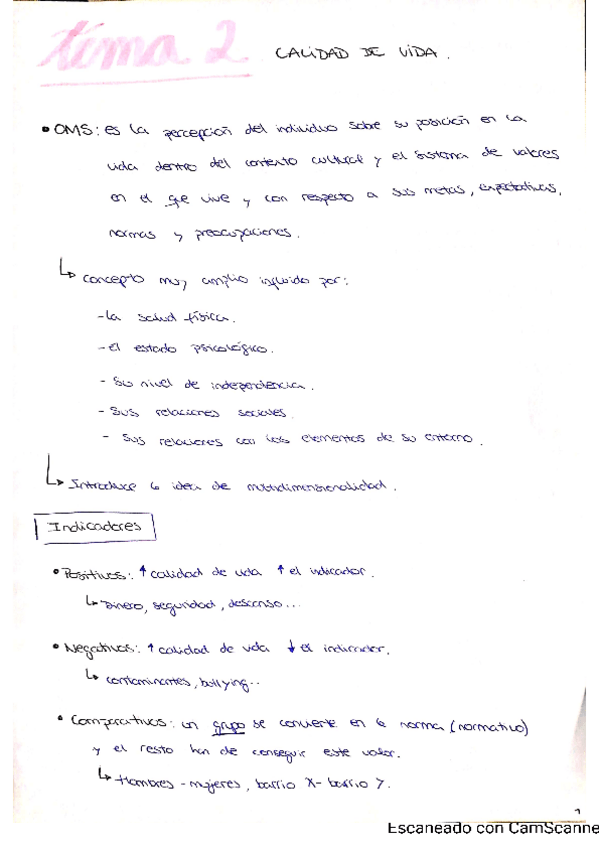 tema 2 CALIDAD DE VIDA.
• OMS: es la percepción del individuo sobre su posición en la
vida dentro del contexto cultural y el sistema de valores
en el que vive y con respecto a sus metas, expectativas,
normas y preocupaciones.
↳ concepto muy amplio influido por:
- la salud física.
- el estado psicológico.
- Su nivel de independencia.
- Sus relaciones sociales.
- Sus relaciones con los elementos de su entorno.
↳ Introduce la idea de multidimensionalidad.
Indicadores
• Positivos: ↑ calidad de vida ↑ el indicador.
↳ Dinero, seguridad, descanso...
• Negativos: ↑ calidad de vida ↓ el indicador.
↳ contaminantes, bullying..
• Comparativos: un grupo se convierte en la norma (normativo)
y el resto han de conseguir este valor.
↳ Hombres - mujeres, barrio X - barrio Y.
1
Escaneado con CamScanne